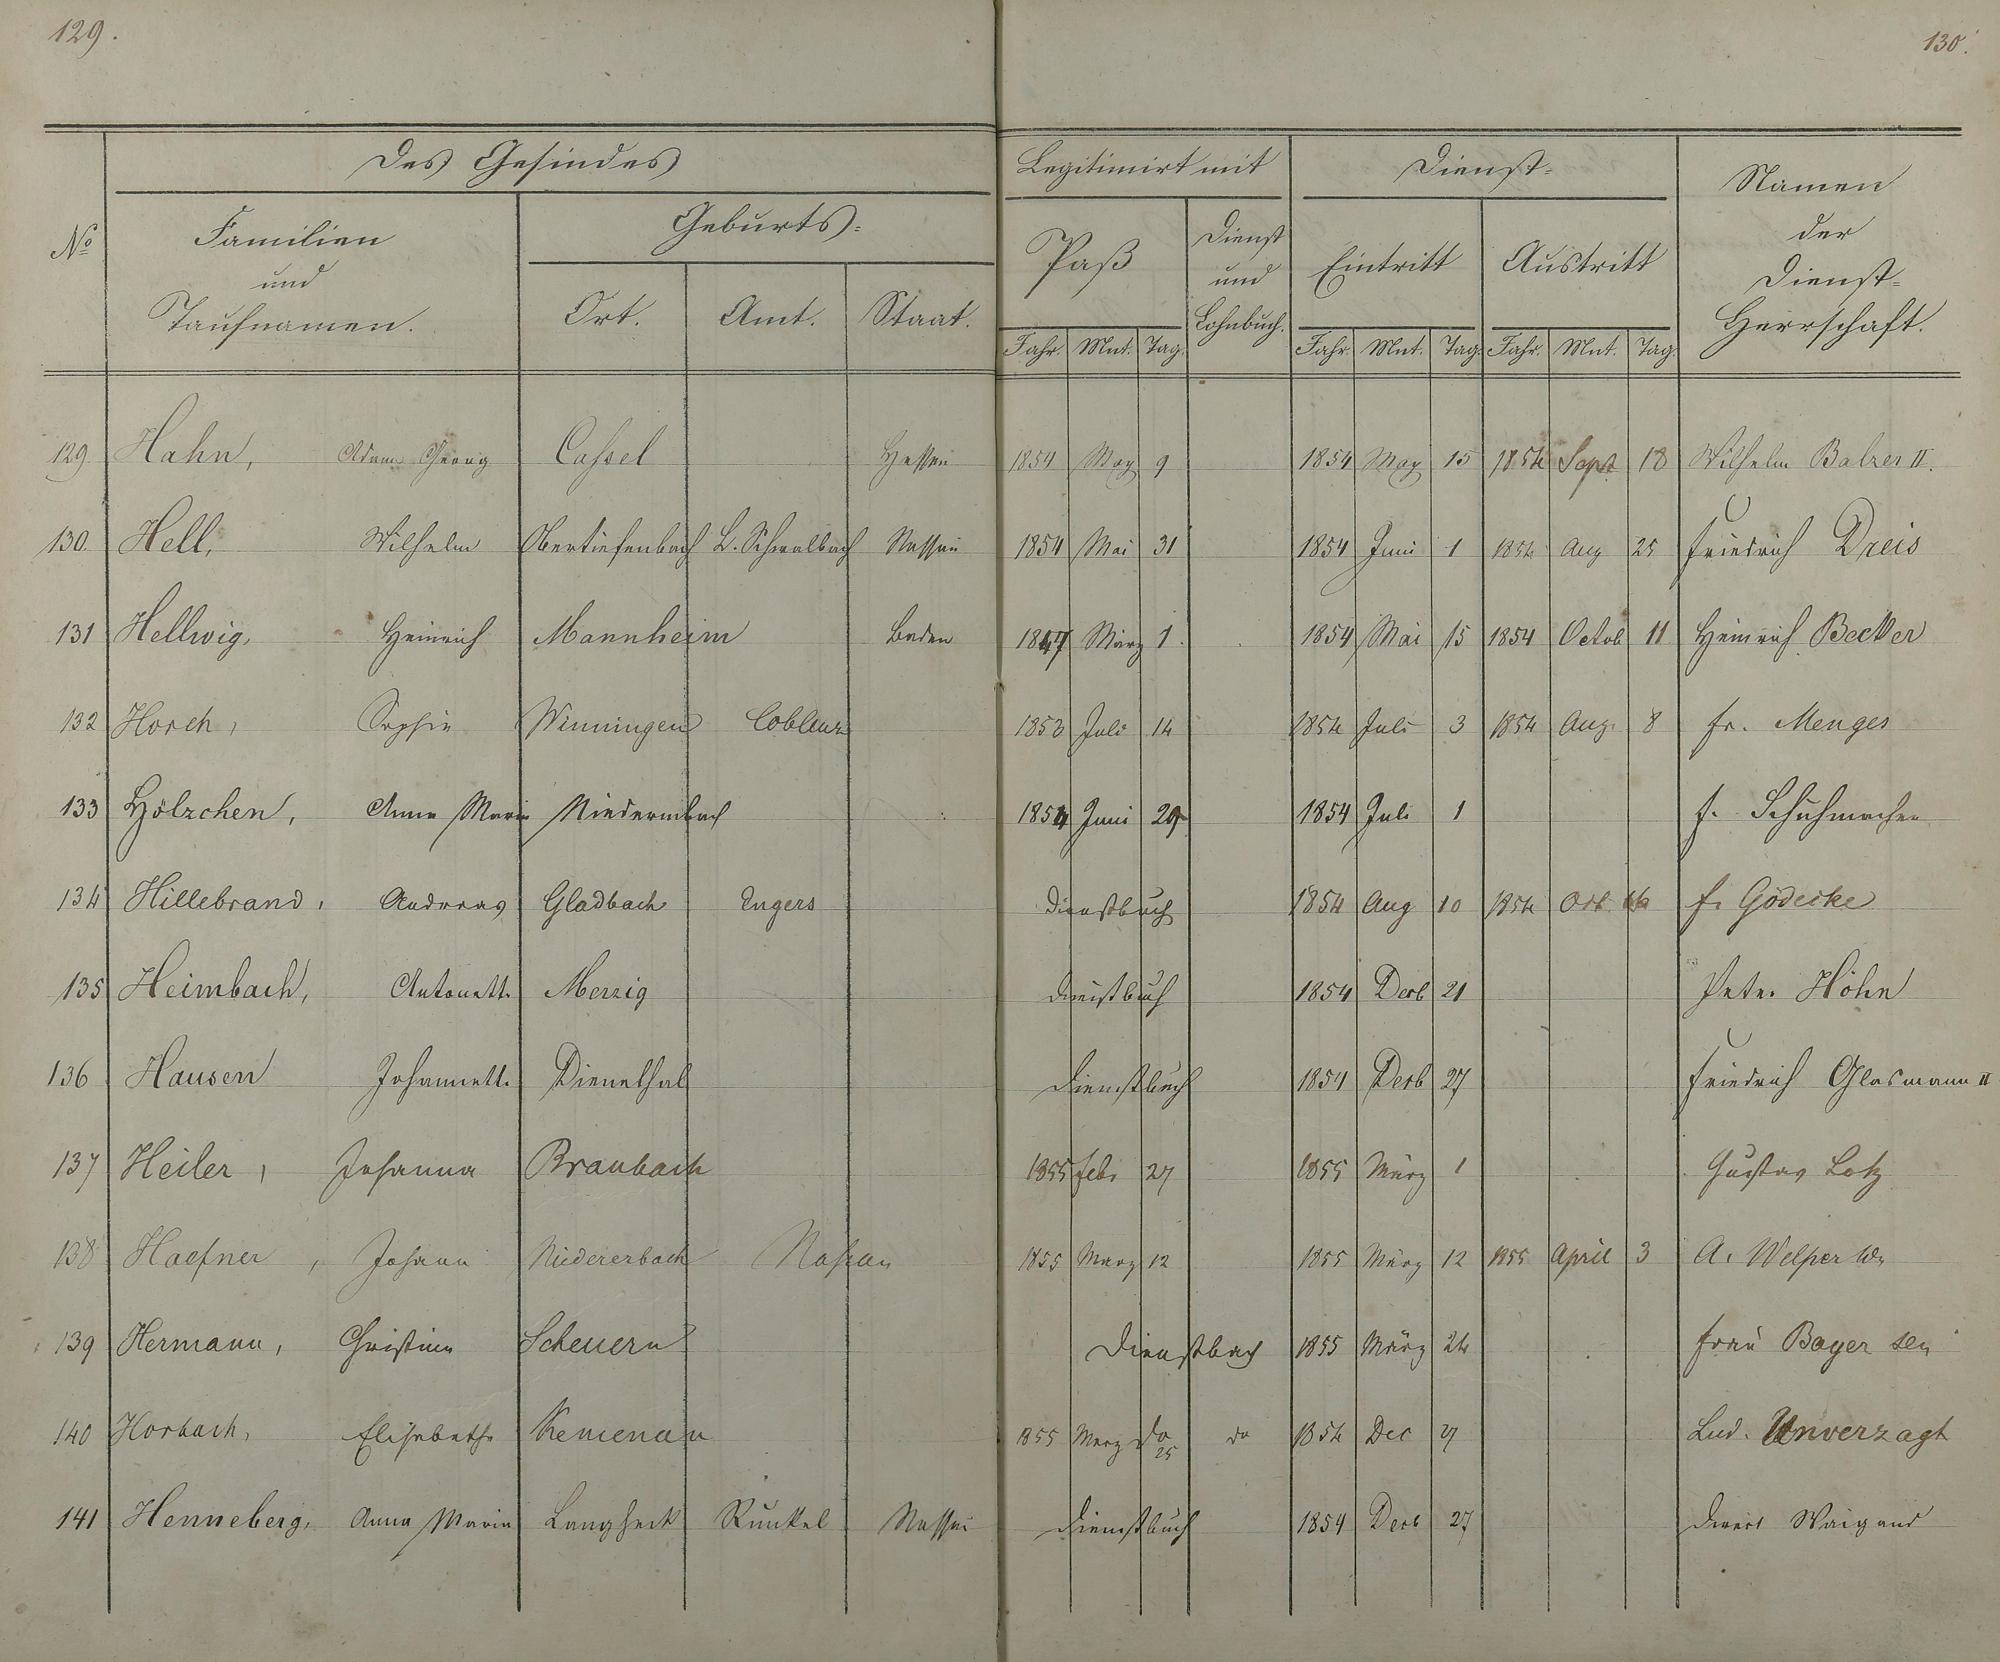 129.
130.
Des Gesindes
Legitimirt mit
Dienst-
Namen der Dienst-Herrschaft.
No
Familien und Taufnamen.
Geburts-
Paß
Dienst und Lohnbuch.
Eintritt
Austritt
Ort. Amt. Staat.
Jahr. Mnt. Tag. Jahr. Mnt. Tag. Jahr. Mnt. Tag.
129. Hahn, Adam Georg Cassel Hessen 1854 May 9 1854 May 15 1854 Sept 18 Wilhelm Balzer II.
130. Hell, Wilhelm Obertiefenbach L. Schwalbach Nassau 1854 Mai 31 1854 Juni 1 1854 Aug 25 Friedrich Dreis
131 Hellwig, Heinrich Mannheim Baden 1847 März 1. 1854 Mai 15 1854 Octob 11 Heinrich Becker
132 Horch, Sophie Winningen Coblenz 1853 Juli 14 1854 Juli 3 1854 Aug. 8 Fr. Menges
133 Hölzchen, Anna Maria 1854 Juni 29 1854 Juli 1 F. Schuhmacher
134 Hillebrand, Andreas Gladbach Engers Dienstbuch 1854 Aug 10 1854 Oct F. Gödecke
135 Heimbach, Antonette Merzig Dienstbuch 1854 Decb 21 Peter Höhn
136 Hausen Johannette Dienethal Dienstbuch 1854 Decb 27 Friedrich Glasmann II
137 Heiler, Johanna Braubach 1855 Febr 27 1855 März 1 Gustav Lotz
138 Haefner, Johann Niedererbach Nassau 1855 Marz 12 1855 März 12 1855 April 3 A. Welper
139 Hermann, Christine Scheuern Dienstbuch 1855 März 24 Frau Bayer sen
140 Horbach, Elisabethe Kemenau 1855 Merz do 25 do 1854 Dec 27 Lud. Unverzagt
141 Henneberg, Anna Maria Langheck Runkel Nassau Dienstbuch 1854 Decb 27 Waigand